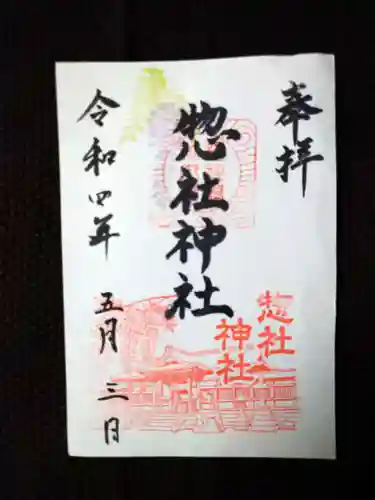 奉拝
惣社神社
令和四年 五月 三日
惣社
神社